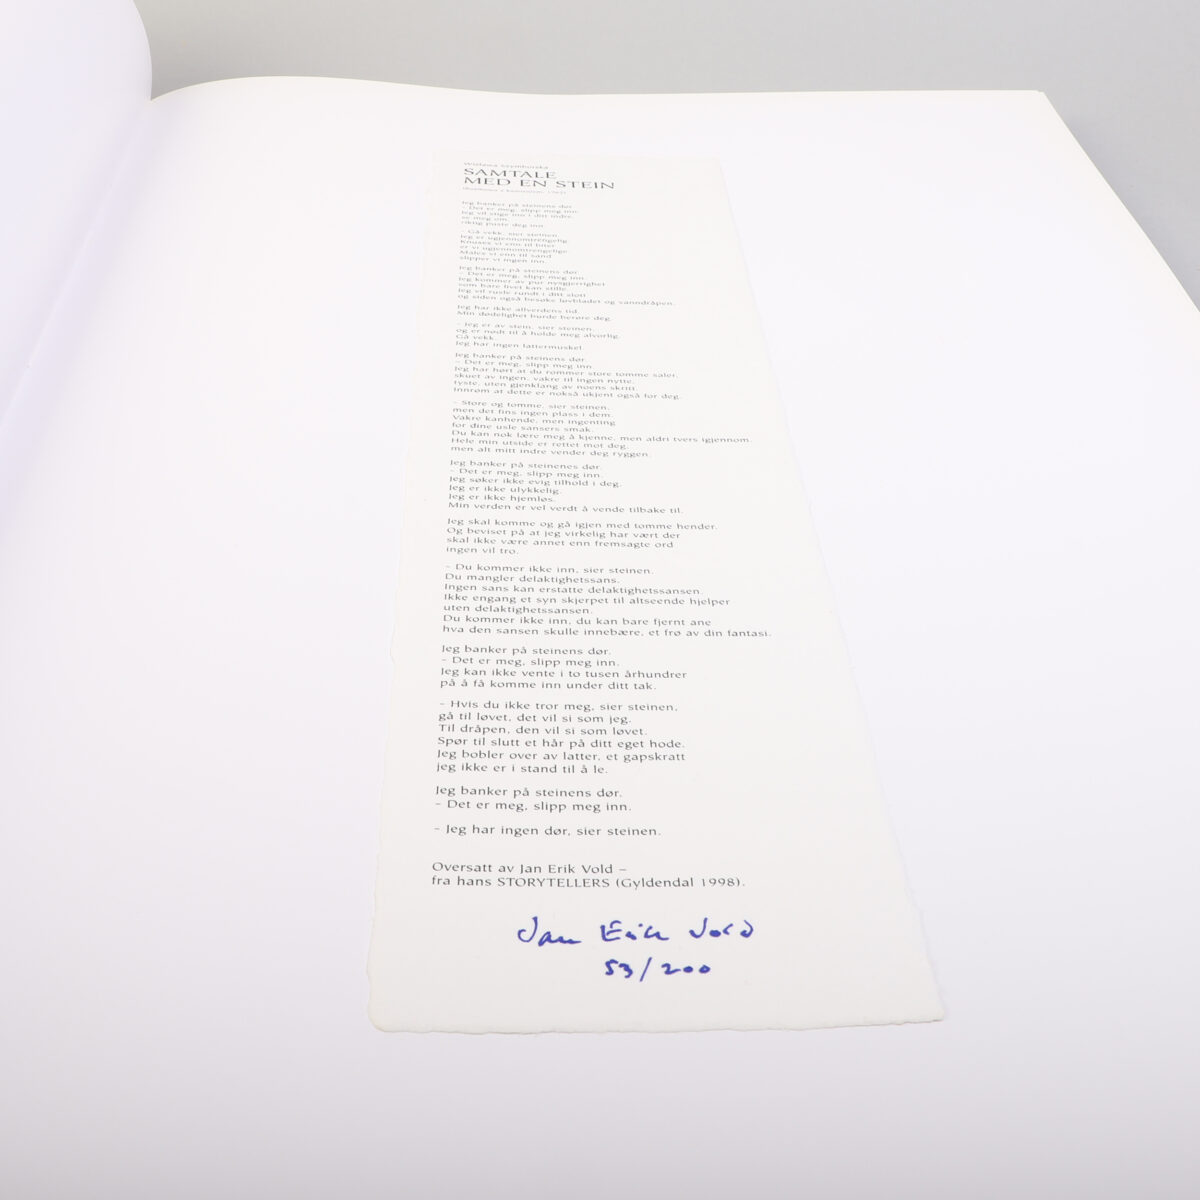 Wisława Szymborska
SAMTALE
MED EN STEIN
Jeg banker på steinens dør.
– Det er meg, slipp meg inn.
Jeg vil stige inn i ditt indre,
se meg om,
riktig puste deg inn.
– Gå vekk, sier steinen.
Jeg er ugjennomtrengelig.
Knuses vi enn til biter
er vi ugjennomtrengelige.
Males vi enn til sand
slipper vi ingen inn.
Jeg banker på steinens dør.
– Det er meg, slipp meg inn.
Jeg kommer av pur nysgjerrighet
som bare livet kan stille.
Jeg vil rusle rundt i ditt slott
og siden også besøke løvbladet og vanndråpen.
Jeg har ikke allverdens tid.
Min dødelighet burde berøre deg.
– Jeg er av stein, sier steinen,
og er nødt til å holde meg alvorlig.
Gå vekk.
Jeg har ingen lattermuskel.
Jeg banker på steinens dør.
– Det er meg, slipp meg inn.
Jeg har hørt at du rommer store tomme saler,
skuet av ingen, vakre til ingen nytte,
tyste, uten gjenklang av noens skritt.
Innrøm at dette er nokså ukjent også for deg.
– Store og tomme, sier steinen,
men det fins ingen plass i dem.
Vakre kanhende, men ingenting
for dine usle sansers smak.
Du kan nok lære meg å kjenne, men aldri tvers igjennom.
Hele min utside er rettet mot deg,
men alt mitt indre vender deg ryggen.
Jeg banker på steinenes dør.
– Det er meg, slipp meg inn.
Jeg søker ikke evig tilhold i deg.
Jeg er ikke ulykkelig.
Jeg er ikke hjemløs.
Min verden er vel verdt å vende tilbake til.
Jeg skal komme og gå igjen med tomme hender.
Og beviset på at jeg virkelig har vært der
skal ikke være annet enn fremsagte ord
ingen vil tro.
– Du kommer ikke inn, sier steinen.
Du mangler delaktighetssans.
Ingen sans kan erstatte delaktighetssansen.
Ikke engang et syn skjerpet til altseende hjelper
uten delaktighetssansen.
Du kommer ikke inn, du kan bare fjernt ane
hva den sansen skulle innebære, et frø av din fantasi.
Jeg banker på steinens dør.
– Det er meg, slipp meg inn.
Jeg kan ikke vente i to tusen århundrer
på å få komme inn under ditt tak.
– Hvis du ikke tror meg, sier steinen,
gå til løvet, det vil si som jeg.
Til dråpen, den vil si som løvet.
Spør til slutt et hår på ditt eget hode.
Jeg bobler over av latter, et gapskratt
jeg ikke er i stand til å le.
Jeg banker på steinens dør.
– Det er meg, slipp meg inn.
– Jeg har ingen dør, sier steinen.
Oversatt av Jan Erik Vold –
fra hans STORYTELLERS (Gyldendal 1998).
Jan Erik Vold
53/200